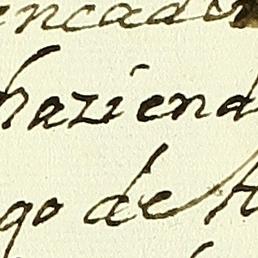 encader
haziend
go de